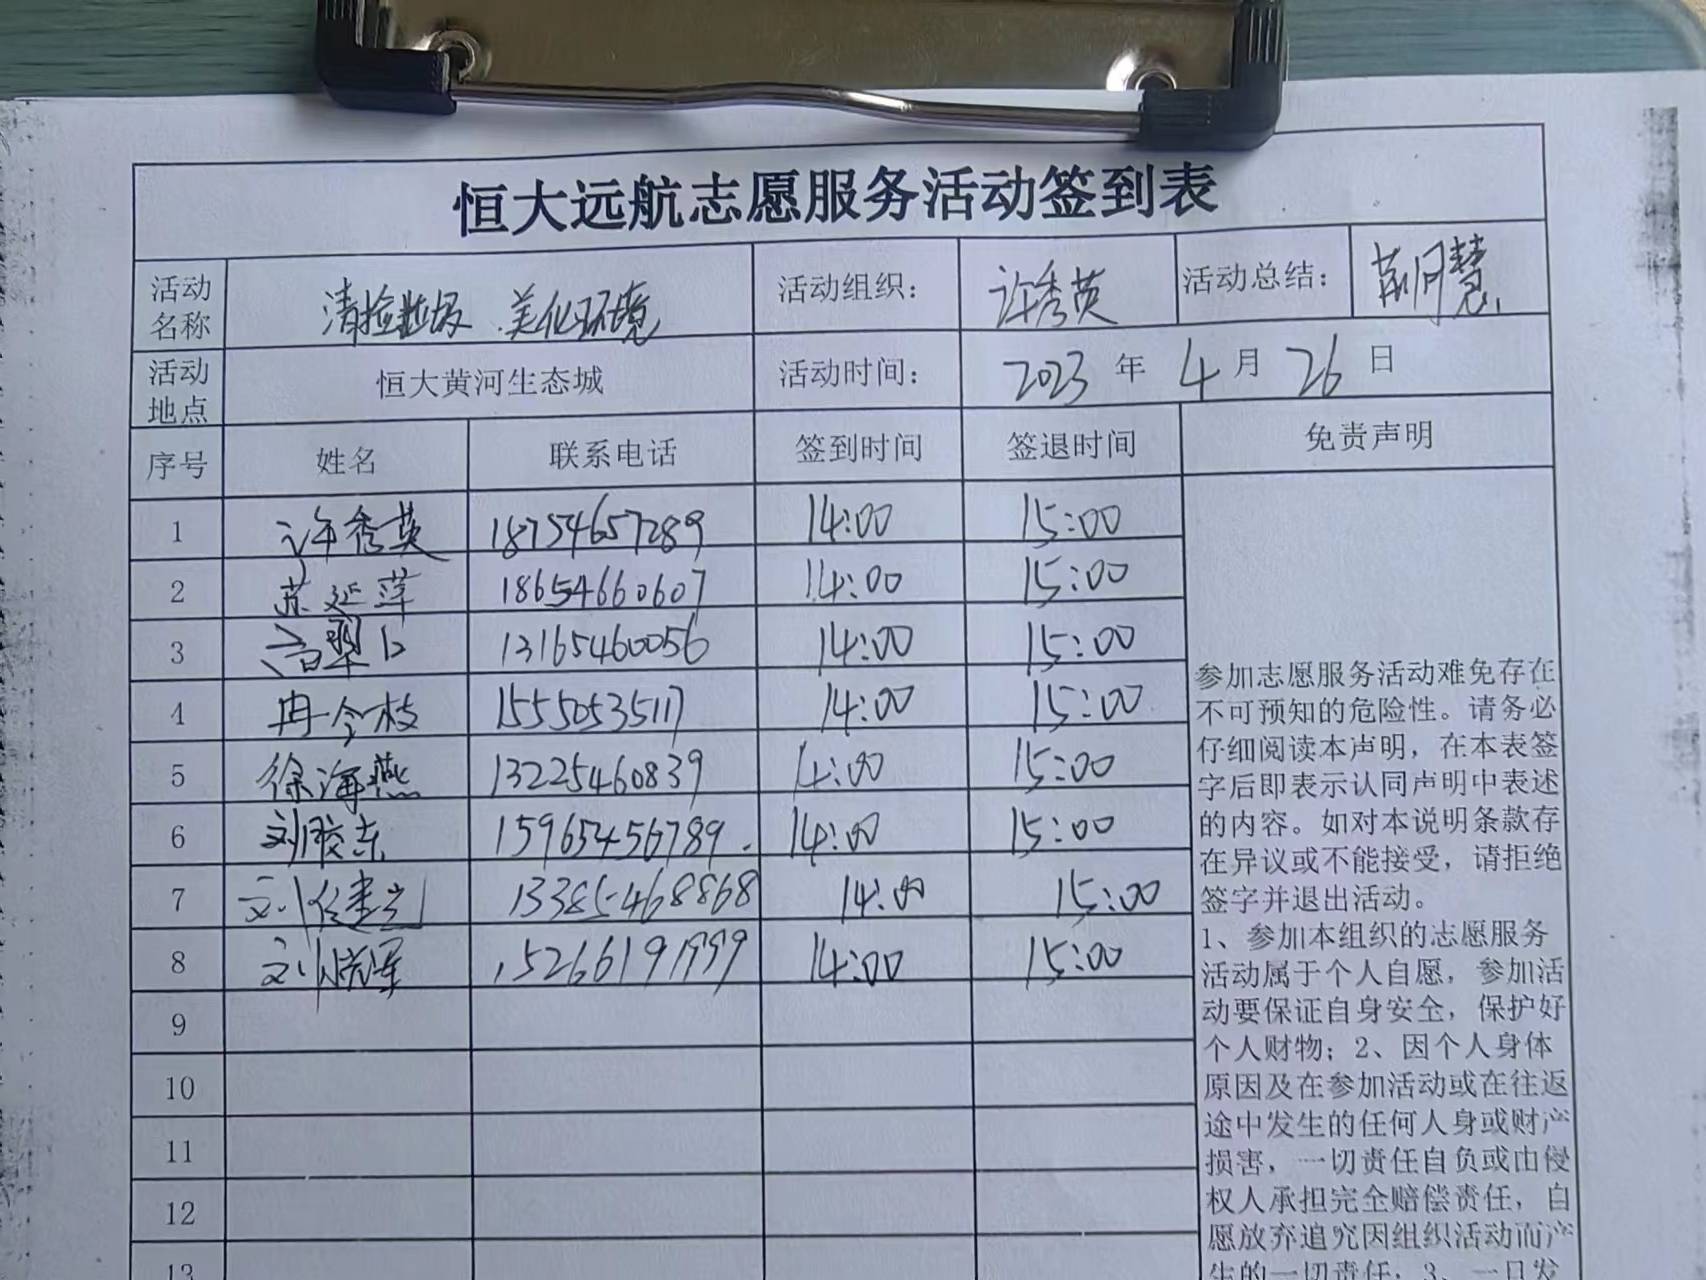 恒大远航志愿服务活动签到表
活动名称 清捡垃圾 美化环境 活动组织： 许秀英 活动总结：
活动地点 恒大黄河生态城 活动时间： 2023 年 4 月 26 日
序号 姓名 联系电话 签到时间 签退时间 免责声明
1 许秀英 18754657289 14:00 15:00
2 苏延萍 18654660607 14:00 15:00
3 13165460056 14:00 15:00
4 冉令枝 15550535117 14:00 15:00
5 徐海燕 13225460839 14:00 15:00
6 刘胶东 15965456789. 14:00 15:00
7 13385468868 14:00 15:00
8 15266191999 14:00 15:00
9
10
11
12
13
参加志愿服务活动难免存在
不可预知的危险性。请务必
仔细阅读本声明，在本表签
字后即表示认同声明中表述
的内容。如对本说明条款存
在异议或不能接受，请拒绝
签字并退出活动。
1、参加本组织的志愿服务
活动属于个人自愿，参加活
动要保证自身安全，保护好
个人财物；2、因个人身体
原因及在参加活动或在往返
途中发生的任何人身或财产
损害，一切责任自负或由侵
权人承担完全赔偿责任，自
愿放弃追究因组织活动而产
生的一切责任；3、一旦发